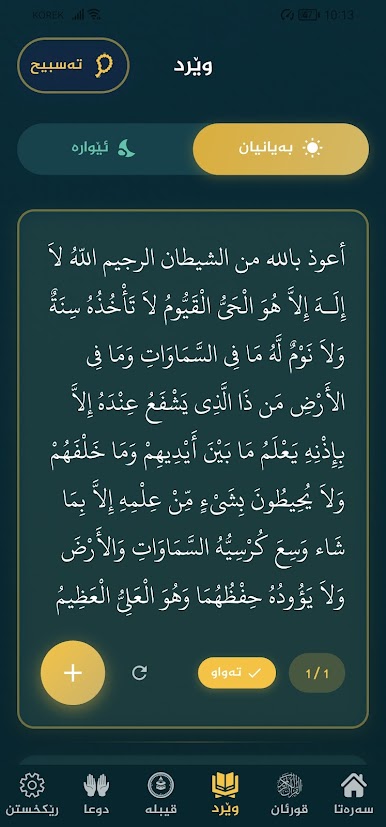 KOREK
47
10:13
وێرد
تەسبیح
بەیانیان
ئێوارە
أعوذ بالله من الشيطان الرجيم اللّهُ لاَ
إِلَـهَ إِلاَّ هُوَ الْحَيُّ الْقَيُّومُ لاَ تَأْخُذُهُ سِنَةٌ
وَلاَ نَوْمٌ لَّهُ مَا فِي السَّمَاوَاتِ وَمَا فِي
الأَرْضِ مَن ذَا الَّذِي يَشْفَعُ عِنْدَهُ إِلاَّ
بِإِذْنِهِ يَعْلَمُ مَا بَيْنَ أَيْدِيهِمْ وَمَا خَلْفَهُمْ
وَلاَ يُحِيطُونَ بِشَيْءٍ مِّنْ عِلْمِهِ إِلاَّ بِمَا
شَاء وَسِعَ كُرْسِيُّهُ السَّمَاوَاتِ وَالأَرْضَ
وَلاَ يَؤُودُهُ حِفْظُهُمَا وَهُوَ الْعَلِيُّ الْعَظِيمُ
1 / 1
تەواو
سەرەتا
قورئان
وێرد
قیبلە
دوعا
رێکخستن